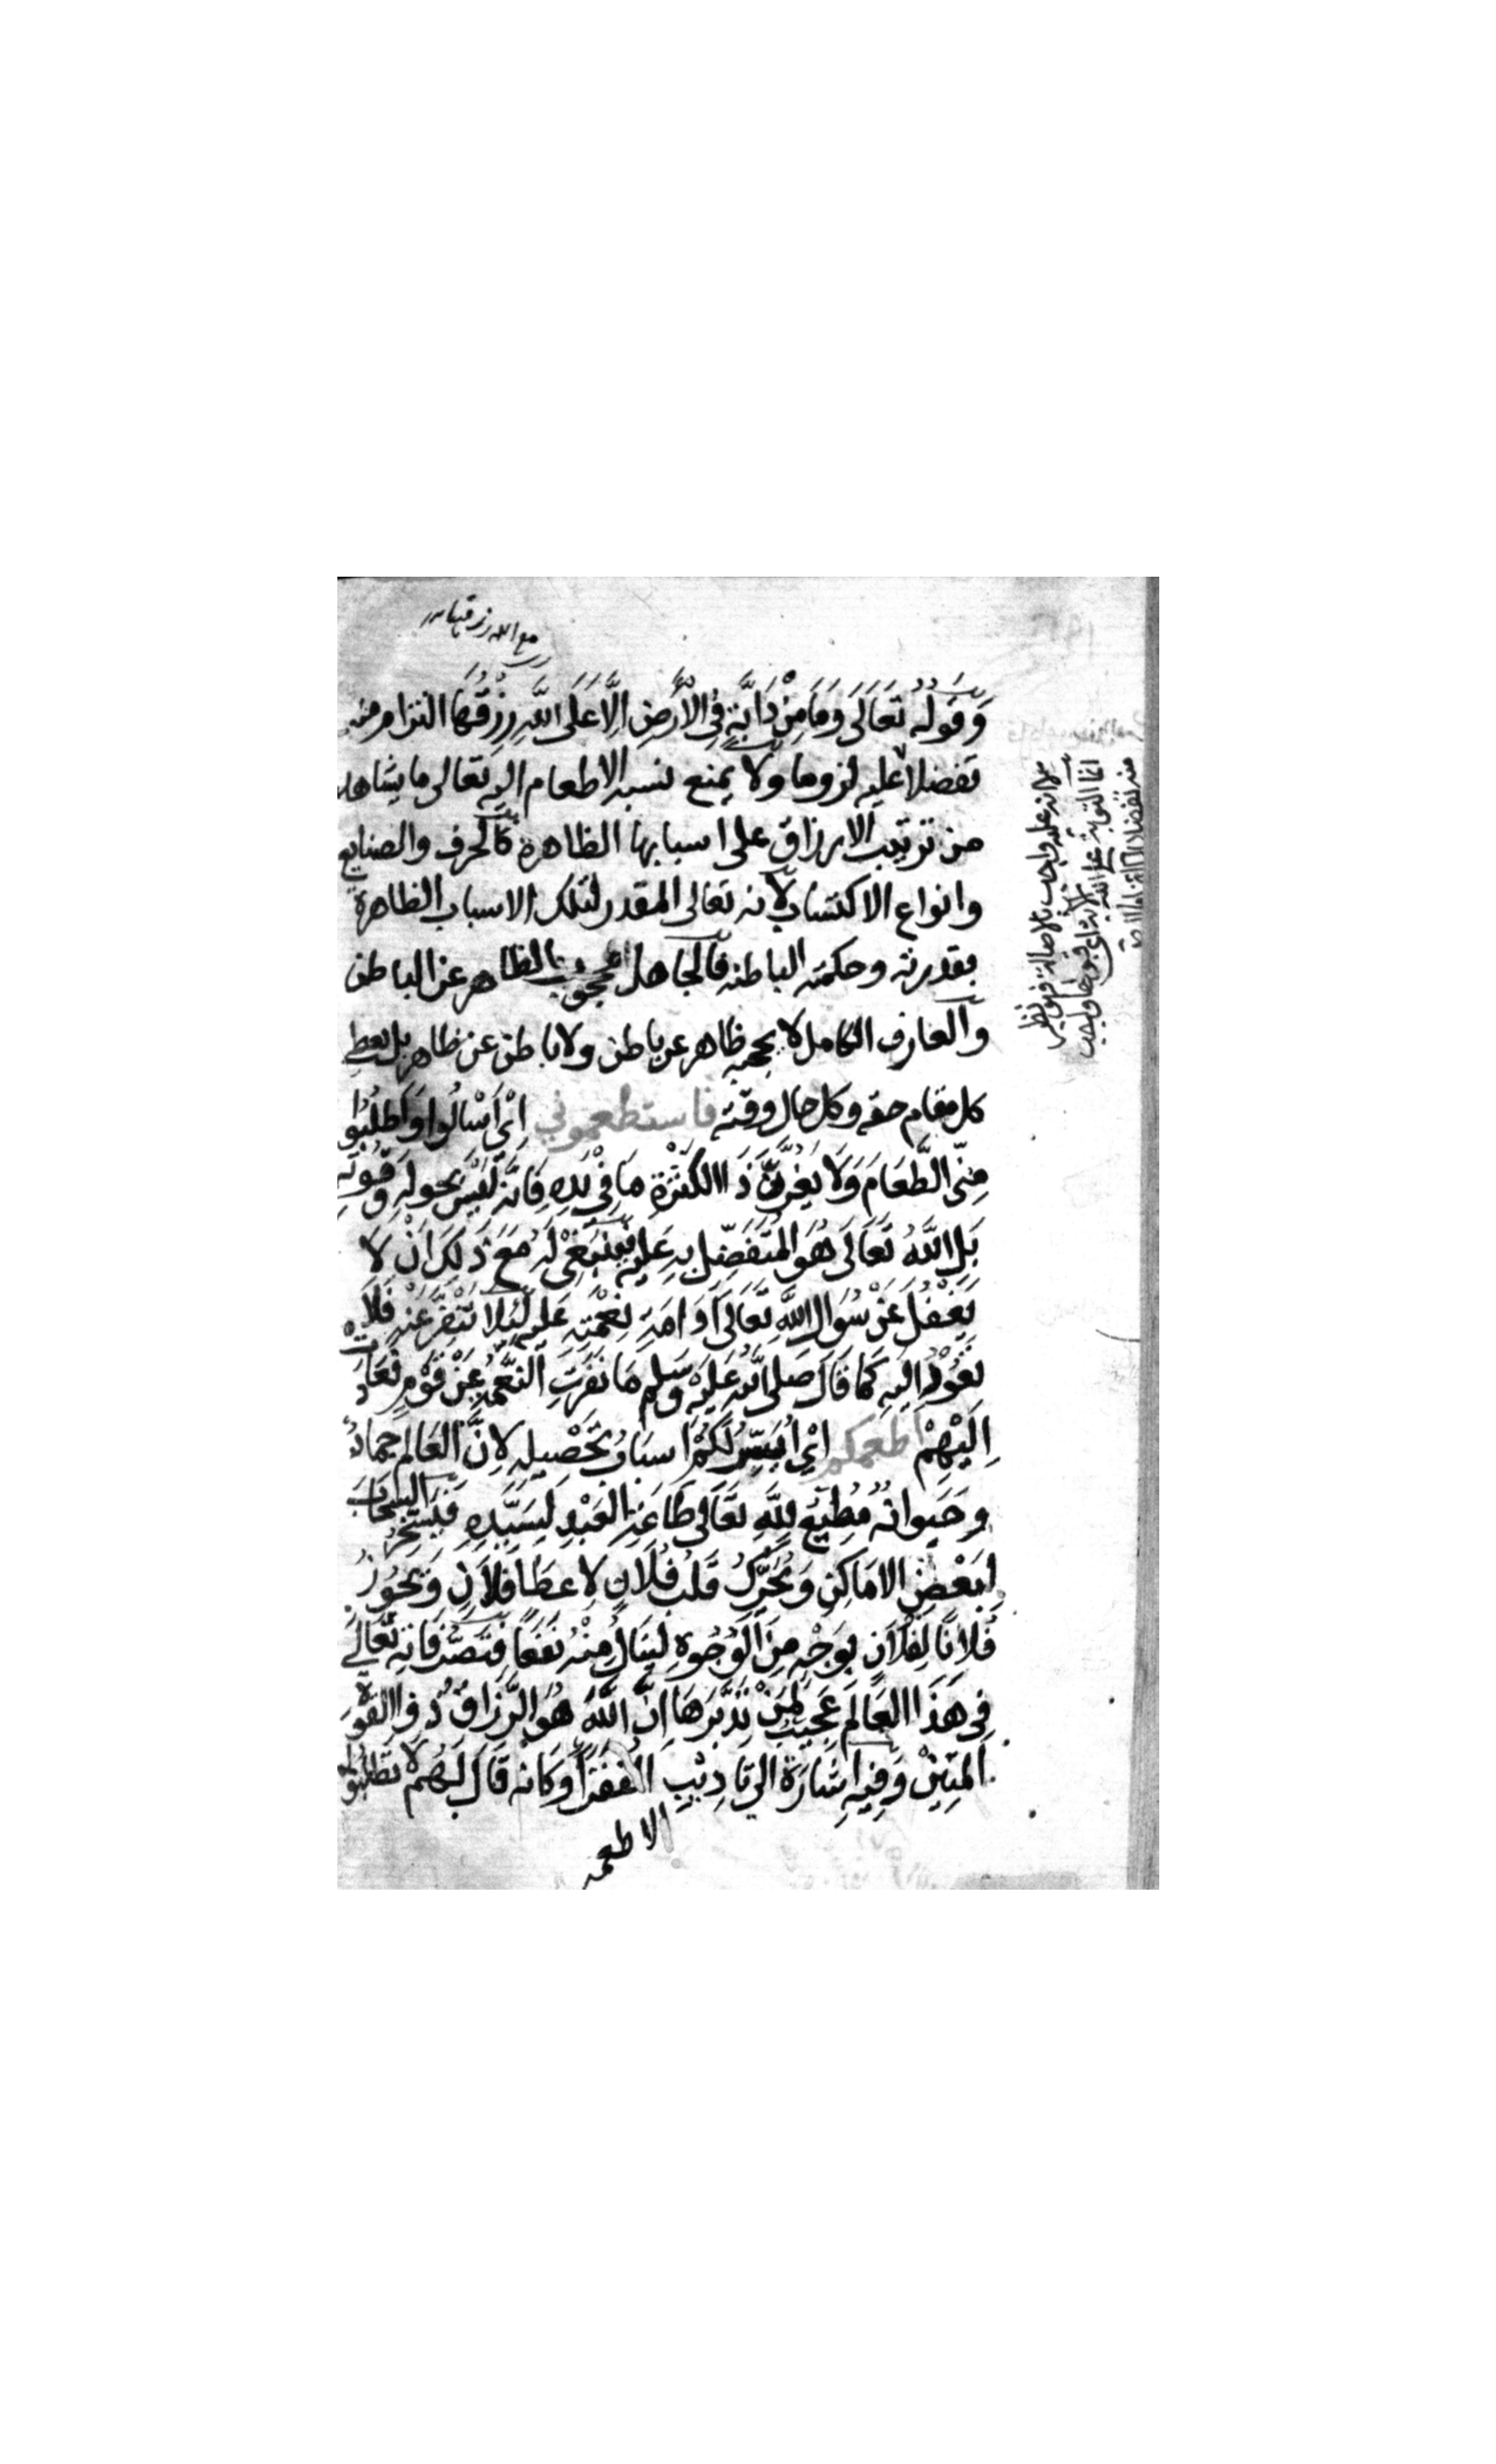 وَقَولُهُ تَعَالَى وَمَا مِنْ دَابَّةٍ فِي الأَرْضِ اِلَّا عَلَى اللَّهِ رِزْقُهَا التزام منه
تفضلا عليه لزوما ولا يمنع نسبة الاطعام اليه تعالى ما يشاهد
من ترتيب الارزاق على اسبابها الظاهرة كالحرف والصنايع
وانواع الاكتساب لانه تعالى المقدر لتلك الاسباب الظاهرة
بقدرته وحكمته الباطنه فالجاهل محجوب بالظاهر عن الباطن
والعارف الكامل لا يحجبه ظاهر عن باطن ولا باطن عن ظاهر بل يعطي
كل مقام حقه وكل حال وقته فاستطعموني اِيْ اَسْالُوا وَاطْلُبُوا
مِنِّي الطَّعَامَ وَلَا يَغُرَّنَّ ذَا الكَثْرَةِ مَا فِيْ يَدِهِ فَاِنَّهُ لَيْسَ بحوله وَقُوتِهِ
بَلِ اللَّهُ تَعَالَى هُوَ المُتَفَضِّل بِهِ عَلَيْهِ فينبَغِيْ لَهُ مَعَ ذَلِكَ اَنْ لَا
يَغْفُلَ عَنْ سُوَالِ اللَّهِ تَعَالَى اِدَامَةِ نِعْمَتِهِ عَلَيْهِ لَيُلا تَنْفِرَ عَنْهِ فَلَا
تَعُوْدُ اليهِ كَمَا قَالَ صَلى اللَّه عَلَيْهِ وَسَلم مَا نَفَرَتِ النِّعَمُ عَنْ قَوْمٍ فَعَادَتْ
اِلَيْهِمْ اطعمكم اِيْ اُيَسِّرُ لَكُمْ اسبَابُ تَحْصِيلِهِ لِانَّ العَالَمَ جَمَادُهُ
وحَيَوانُهُ مُطِيْعٌ لِلَّهِ تعَالى طَاعَةِ العَبْدِ لِسَيِّدِهِ فَيُسَخِّرُ السحَابَ
لِبَعْضِ الامَاكِنِ وَيُحَرِّكُ قَلبُ فُلَانٍ لِاعطَا فلَانٍ وَيُحَوِّزُ
فُلَانًا لِفُلَانٍ بِوَجْهٍ مِنَ الوُجُوهِ لِيَنَالَ مِنْهُ نَفَعًا فتَصَرُّفَاتِه تَعَالَى
فِي هَذَا العَالَمِ عَجِيبٌ لِمَنْ تَدَبَّرَهَا اِنَّ اللَّهَ هُوَ الرَّزَاقُ ذُو القُوَّةِ
المَتِيْنُ وَفِيهِ اِشَارَةٌ الى تادِيْبِ الفُقَرَا وكَانه قَالَ لَهُم لا تطلبوا
الاطعمه